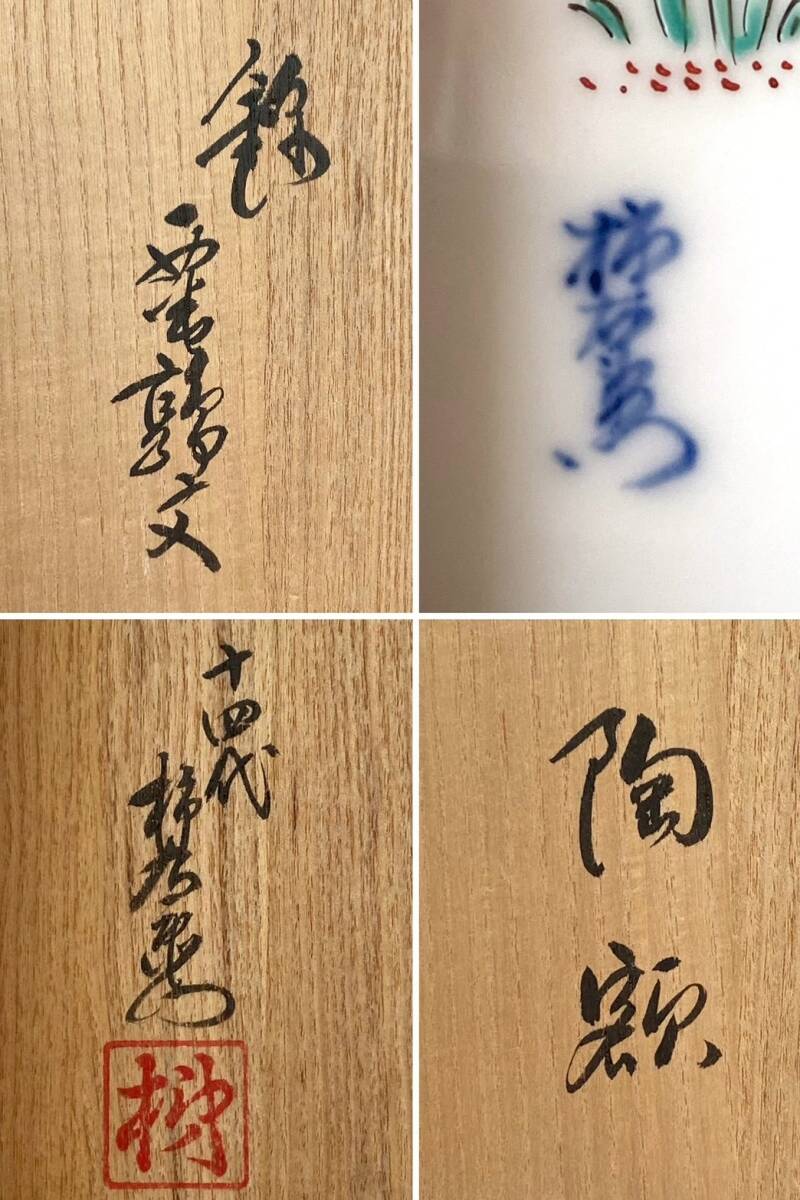 錦
粟鶉文
柿右衛門
十四代
柿右衛門
陶額